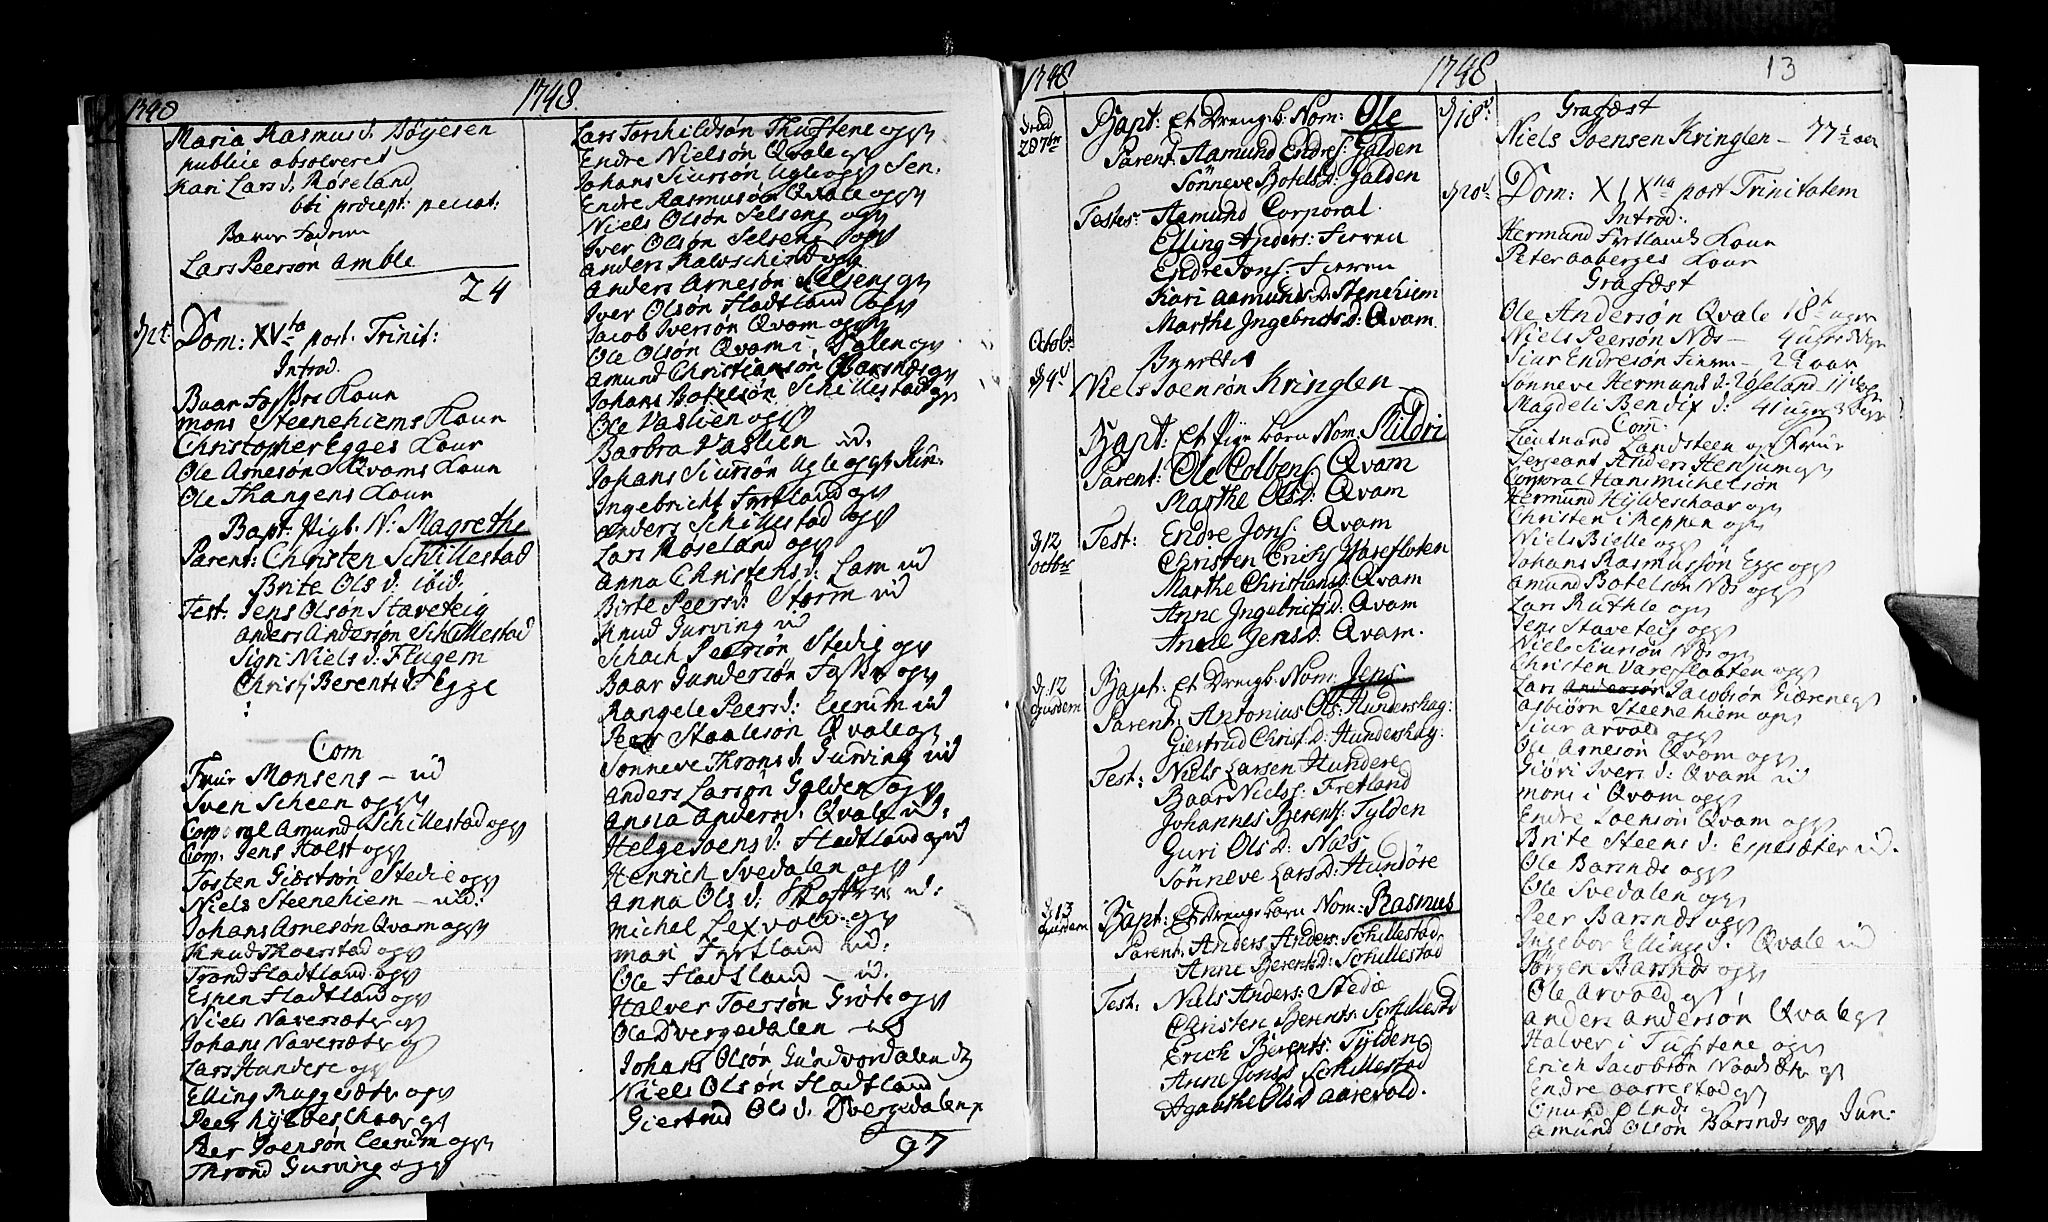 1748
1748.
Maria Rasmus d. Röyesen
publice absolveret
Kari Lars d. Röseland
6ti præcept: peccat:
Barne Fadren
Lars Peersön Amble
24
Dom: XVta post. Trinit:
Introd.
Baar Koun
Mons Steenehiems Koun
Christopher Egges Koun
Ole Arnesön Qvams Koun
Ole Thangens Koun
Bapt: Pigb. N: Magrethe
Parent: Christen Schillestad
Brite Ols d: ibid.
Test: Jens Olsön Staveteig
Anders Andersön Schillestad
Sigri Niels d: Flugem
Berents d: Egge
Com
Frue Monsens - ud
Sven Scheen og
Corporal Amund Schillestad og
Corp. Jens Holst og
Tosten Giestsön Stedie og
Niels Steenehiem - ud:
Johans Arnesön Qvam og
Knud Thorstad og
Trond Fladtland og
Espen Fladtland og
Niels Naversæter
Johans Naversæter
Lars Hundere
Elling Ruggesæter og
Peer Hyldeschaar
Peer Joensön Leerum og
Thrond Gurving og
Lars Torchildsön Thuftene og
Endre Nielsön Qvale
Johans Siursön Ugle og Sen.
Endre Rasmusön Qvale og
Niels Olsön Selseng og
Iver Olsön Selseng og
Anders Kalvschind og
Anders Arnesön Selseng
Iver Olsön Fladtland og
Jacob Iversön Qvam og
Ole Olsön Qvam i Dalen
Amund Christiansön Barsnes
Johans Botelsön Schillestad
Ole Vaslien og
Barbra Vaslien ud.
Johans Siursön Ugle og
Ingebricht Fretland
Anders Schillestad og
Lars Röseland og
Anna Christens d: Lam ud
Birte Peers d: Storm ud
Knud Gurving ud
Schach Peersön Stedie og
Baar Gundersön og
Rangele Peers d: Leerum ud
Peer Staalesön Qvale
Sönneve Throns d: Gurving ud
Anders Larsön Galden og
Anna Anders d. Qvale ud:
Helge Joens d: Fladtland ud
Henrich Svedalen og
Anna Ols d: ud:
Michel Lexvold
Mari Fyrtland ud:
Ole Fladtland - ud.
Halver Toersön Gröte og
Ole Dvergedalen - ud
Johans Olsön Gundvordalen
Niels Olsön Fladtland
Giertrud Ols d. Dvergedalen
97
1748
1748
13
Bapt: Et Drengb. Nom: Ole
Parent: Aamund Endres: Galden
Sönneve Botels D: Galden
Testes: Aamund Corporal
Elling Anders: Fieren
Endre Jons: Fieren
Kari Aamunds D: Stenehiem
Marthe Ingebricts D: Qvam
Octobr
Niels Joensön Kringlen
Bapt: Et Pige barn Nom: Mildri
Parent: Ole Colbens: Qvam
Marthe Ols D: Qvam
12 octobr
Test: Endre Jons: Qvam
Christen Erichs: Vårefloten
Marthe Christians D: Qvam
Anne Ingebricts D: Qvam
Anne Jens D: Qvam.
12 ejusdem
Bapt: Et Drengb. Nom: Jens
Parent: Antonius Ols: Hunderskag:
Giertrud Christ D: Hunderskag:
Test: Niels Larsen Hundere
Baar Niels: Fretland
Johannes Berents: Tylden
Guri Ols D: Næs
Sönneve Lars D: Hundöre
13 ejusdem
Bapt: Et Drenge barn Nom: Rasmus
Parent: Anders Anders: Schillestad
Anne Berents D: Schillestad
Test: Niels Anders: Stedie
Christen Berents: Schillestd
Erich Berents: Tylden
Anne Jons D Schillestad
Agaathe Ols D Aarevold.
18
Grafæst
Niels Joensen Kringlen - 77 1/2 aar
20
Dom: XIXna post Trinitatem
Introd.
Hermund Fyrtlands Koun
Peter Aaberges Koun
Grafæst
Ole Andersön Qvale 18 uger
Niels Peersön Næs - 4 uger
Siur Endresön Fieren -
Sönneve Hermund d: Röseland 11
Magdeli Bendix d: 41 uger
Com:
Lieutnand Landsteen og Frue
Sergeant Anders Henjum
Corporal Hans Michelsön
Hermund Hyldeschaar og
Christen i Reppen og
Niels Bielle og
Johans Rasmussön Egge og
Amund Botelsön Næs og
Lars Ruthle og
Jens Staveteig og
Niels Siursön Næs og
Christen Varefloaten og
Lars Andersön Jacobsön Giærne
Asbiörn Steenehiem og
Siur Arvold og
Ole Arnesön Qvam og
Giöri Ivers d: Qvam ud
Mons i Qvam og
Endre Joensön Qvam og
Brite Steens d: Espesæter ud.
Ole Barsnes og
Ole Svedalen og
Peer Barsnes og
Ingebor Ellings d: Qvale ud
Jörgen Barsnes og
Ole Arvold
Anders Andersön Qvale
Halver i Tuftene og
Erich Jacobsön
Endre Aarrestad
Amund Olsön Barsnes og